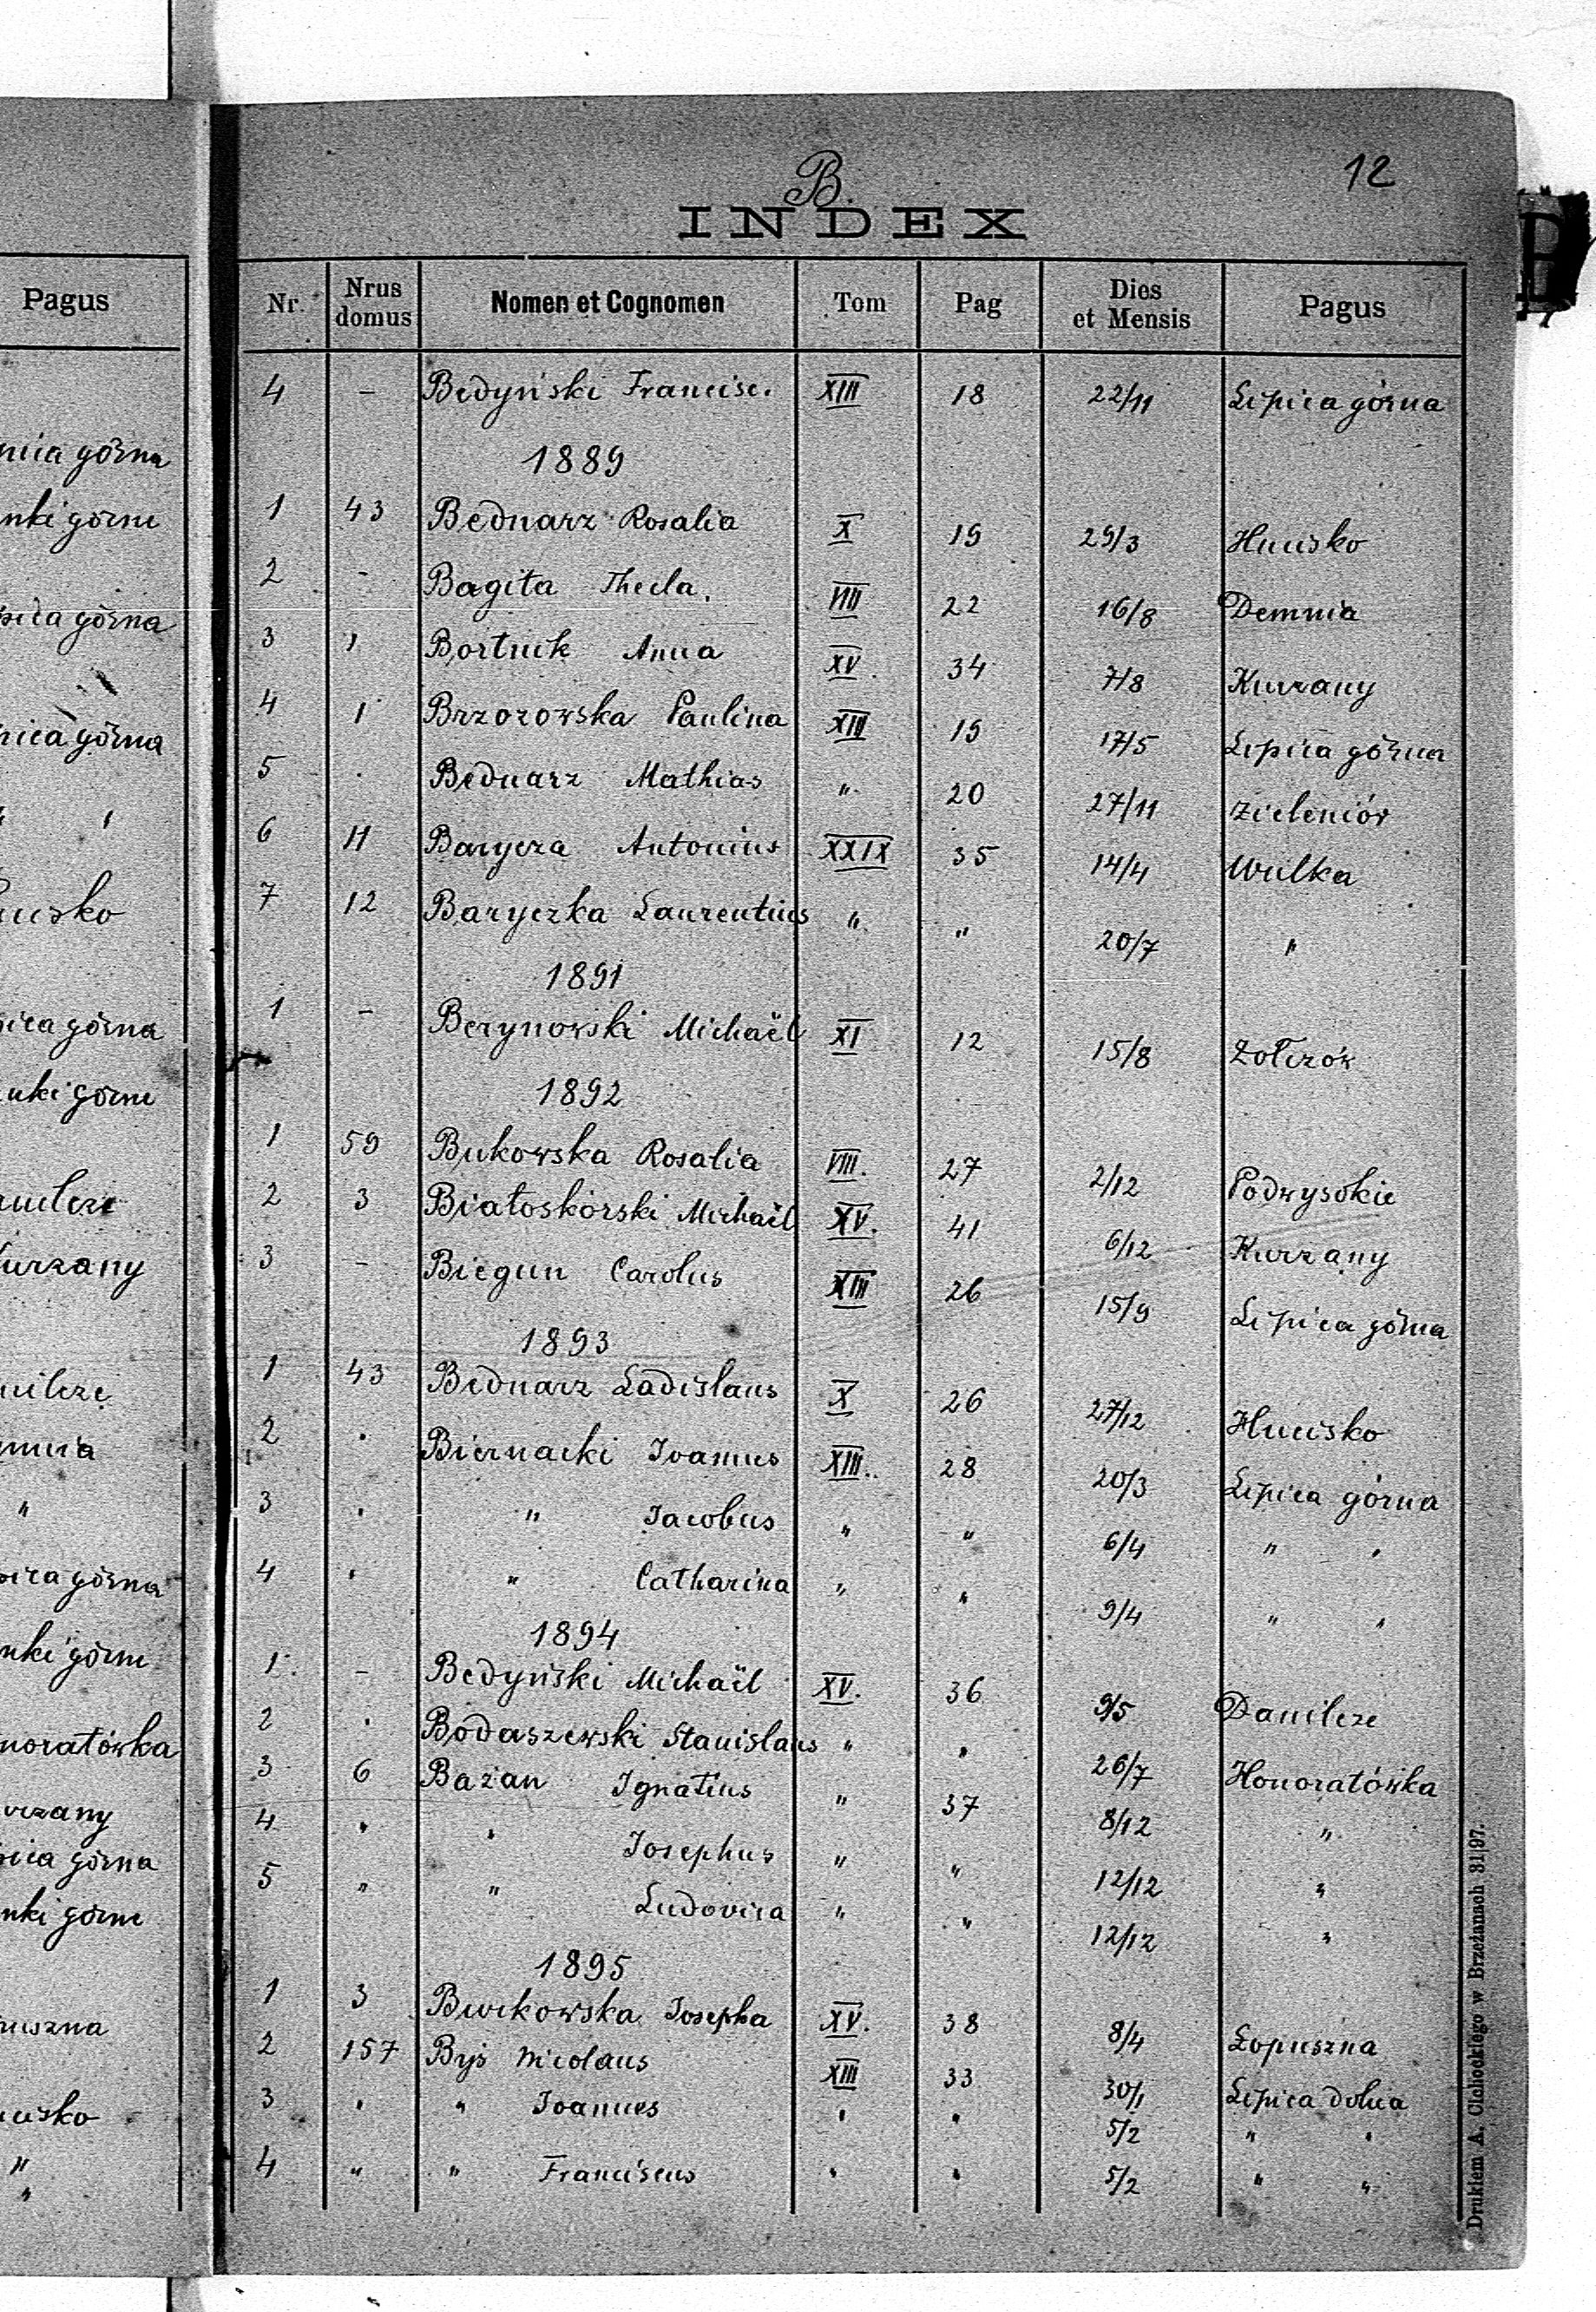 12
B.
INDEX
B
Pagus
Nr. Nrus domus Nomen et Cognomen Tom Pag Dies et Mensis Pagus
4 – Bedyński Francisc. XIII 18 22/11 Lipica górna
1889
1 43 Bednarz Rosalia X 19 29/3 Hucisko
2 - Bagita Thecla. VIII 22 16/8 Demnia
3 1 Bortnik Anna XV. 34 7/8 Kurzany
4 1 Brzozowska Paulina XIII 19 17/5 Lipica górna
5 . Bednarz Mathias " 20 27/11 Zieleniów
6 11 Barycza Antonius XXIX 35 14/4 Wulka
7 12 Baryczka Laurentius " " 20/7 "
1891
1 – Berynowski Michaël XI 12 15/8 Żołczów
1892
1 59 Bukowska Rosalia VIII. 27 2/12 Podwysokie
2 3 Białoskórski Michaël XV. 41 6/12 Kurzany
3 – Biegun Carolus XIII 26 15/9 Lipica górna
1893
1 43 Bednarz Ladislaus X 26 27/12 Hucisko
2 . Biernacki Ioannes XIII.. 28 20/3 Lipica górna
3 " " Iacobus " " 6/4 " "
4 " " Catharina " " 9/4 " "
1894
1. – Bedyński Michaël XV. 36 9/5 Danilcze
2 . Bodaszewski Stanislaus " " 26/7 Honoratówka
3 6 Bażan Ignatius " 37 8/12 "
4 " " Iosephus " " 12/12 "
5 " " Ludovica " " 12/12 "
1895
1 3 Burkowska Iosepha XV. 38 8/4 Łopuszna
2 157 Byś Nicolaus XIII 33 30/1 Lipica dolna
3 " " Ioannes " " 5/2 " "
4 " " Franciscus " " 5/2 " "
Drukiem A. Clohockiego w Brzeżanach 31|97.